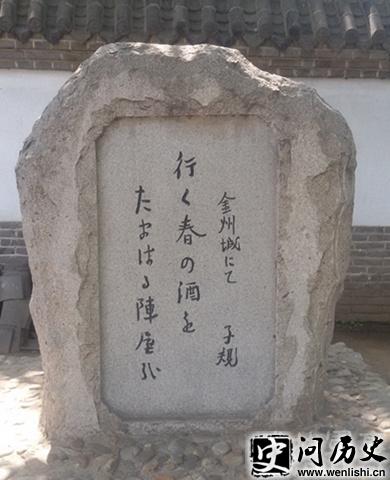 金州城にて
子規
行く春の酒を
たまはる陣屋哉
史问历史
www.wenlishi.cn